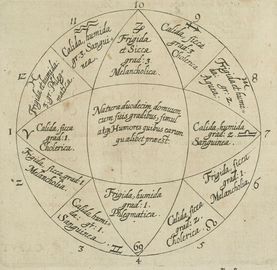 10
11
9
Calida, humida
gr. 3. Sangui-
nea.
Frigida
et Sicca
grad: 3
Melancholica.
Calida, sicca
grad: 3
Cholerica.
Frigida et humi-
da gr: 2.
Aquea
8
12
Frigida et humida
gr. 2
Natura duodecim domuum
cum suis gradibus, simul
atq Humores quibus earum
quælibet præest.
1
Calida, sicca
grad: 1.
Cholerica.
Calida, humida
grad: 2.
Sanguinea.
7
Frigida, sicca grad: 1
Melancholia.
Frigida, humida
grad: 1.
Phlegmatica.
Frigida, sicca
grad: 1.
Melancholia.
2
6
Calida humi-
da, grad: 1.
Sanguinea.
Calida, sicca
grad: 2.
Cholerica.
3
69
4
5